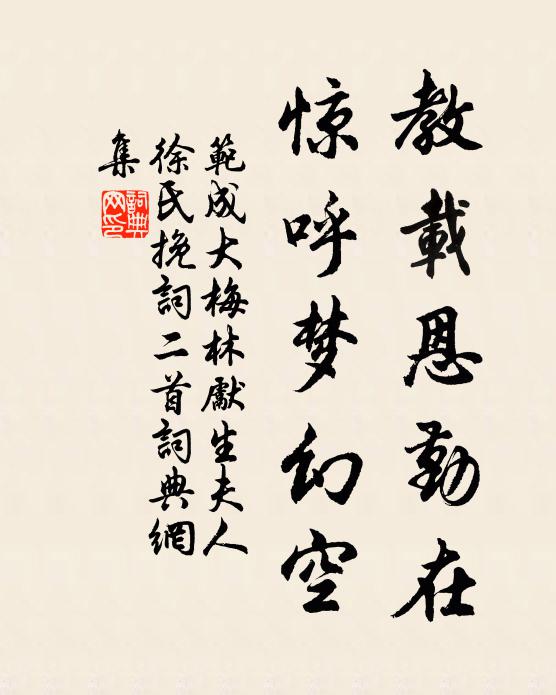 教載恩勤在
惊呼梦幻空
範成大梅林獻生夫人
徐氏挽詞二首詞典網
集
詞典
网印